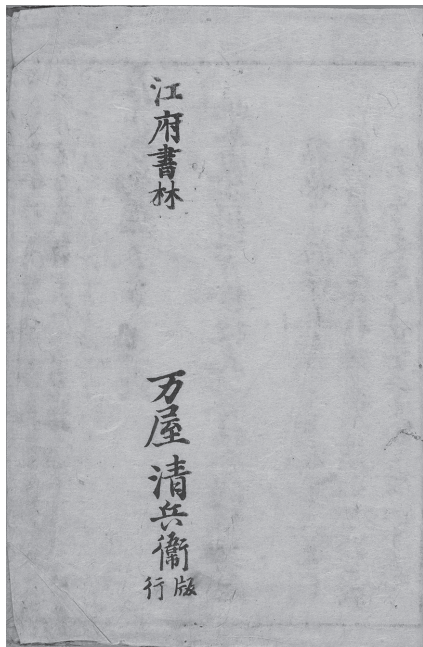 江府書林
万屋清兵衛版行